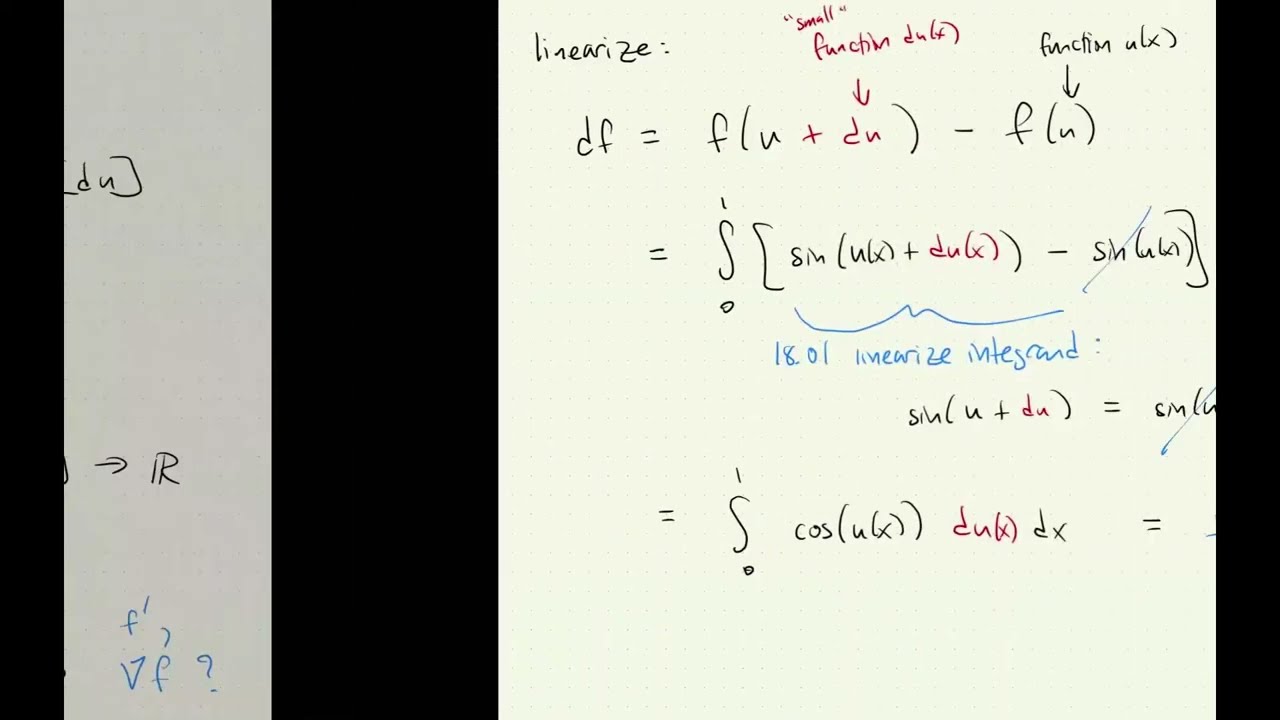 du]
→ ℝ
f',
∇f ?
linearize:
"small"
function du(x)
function u(x)
↓ ↓
df = f(u + du) - f(u)
= ∫₀¹ [sin(u(x) + du(x)) - sin(u(x))]
18.01 linearize integrand:
sin(u + du) = sin(u
= ∫₀¹ cos(u(x)) du(x) dx =